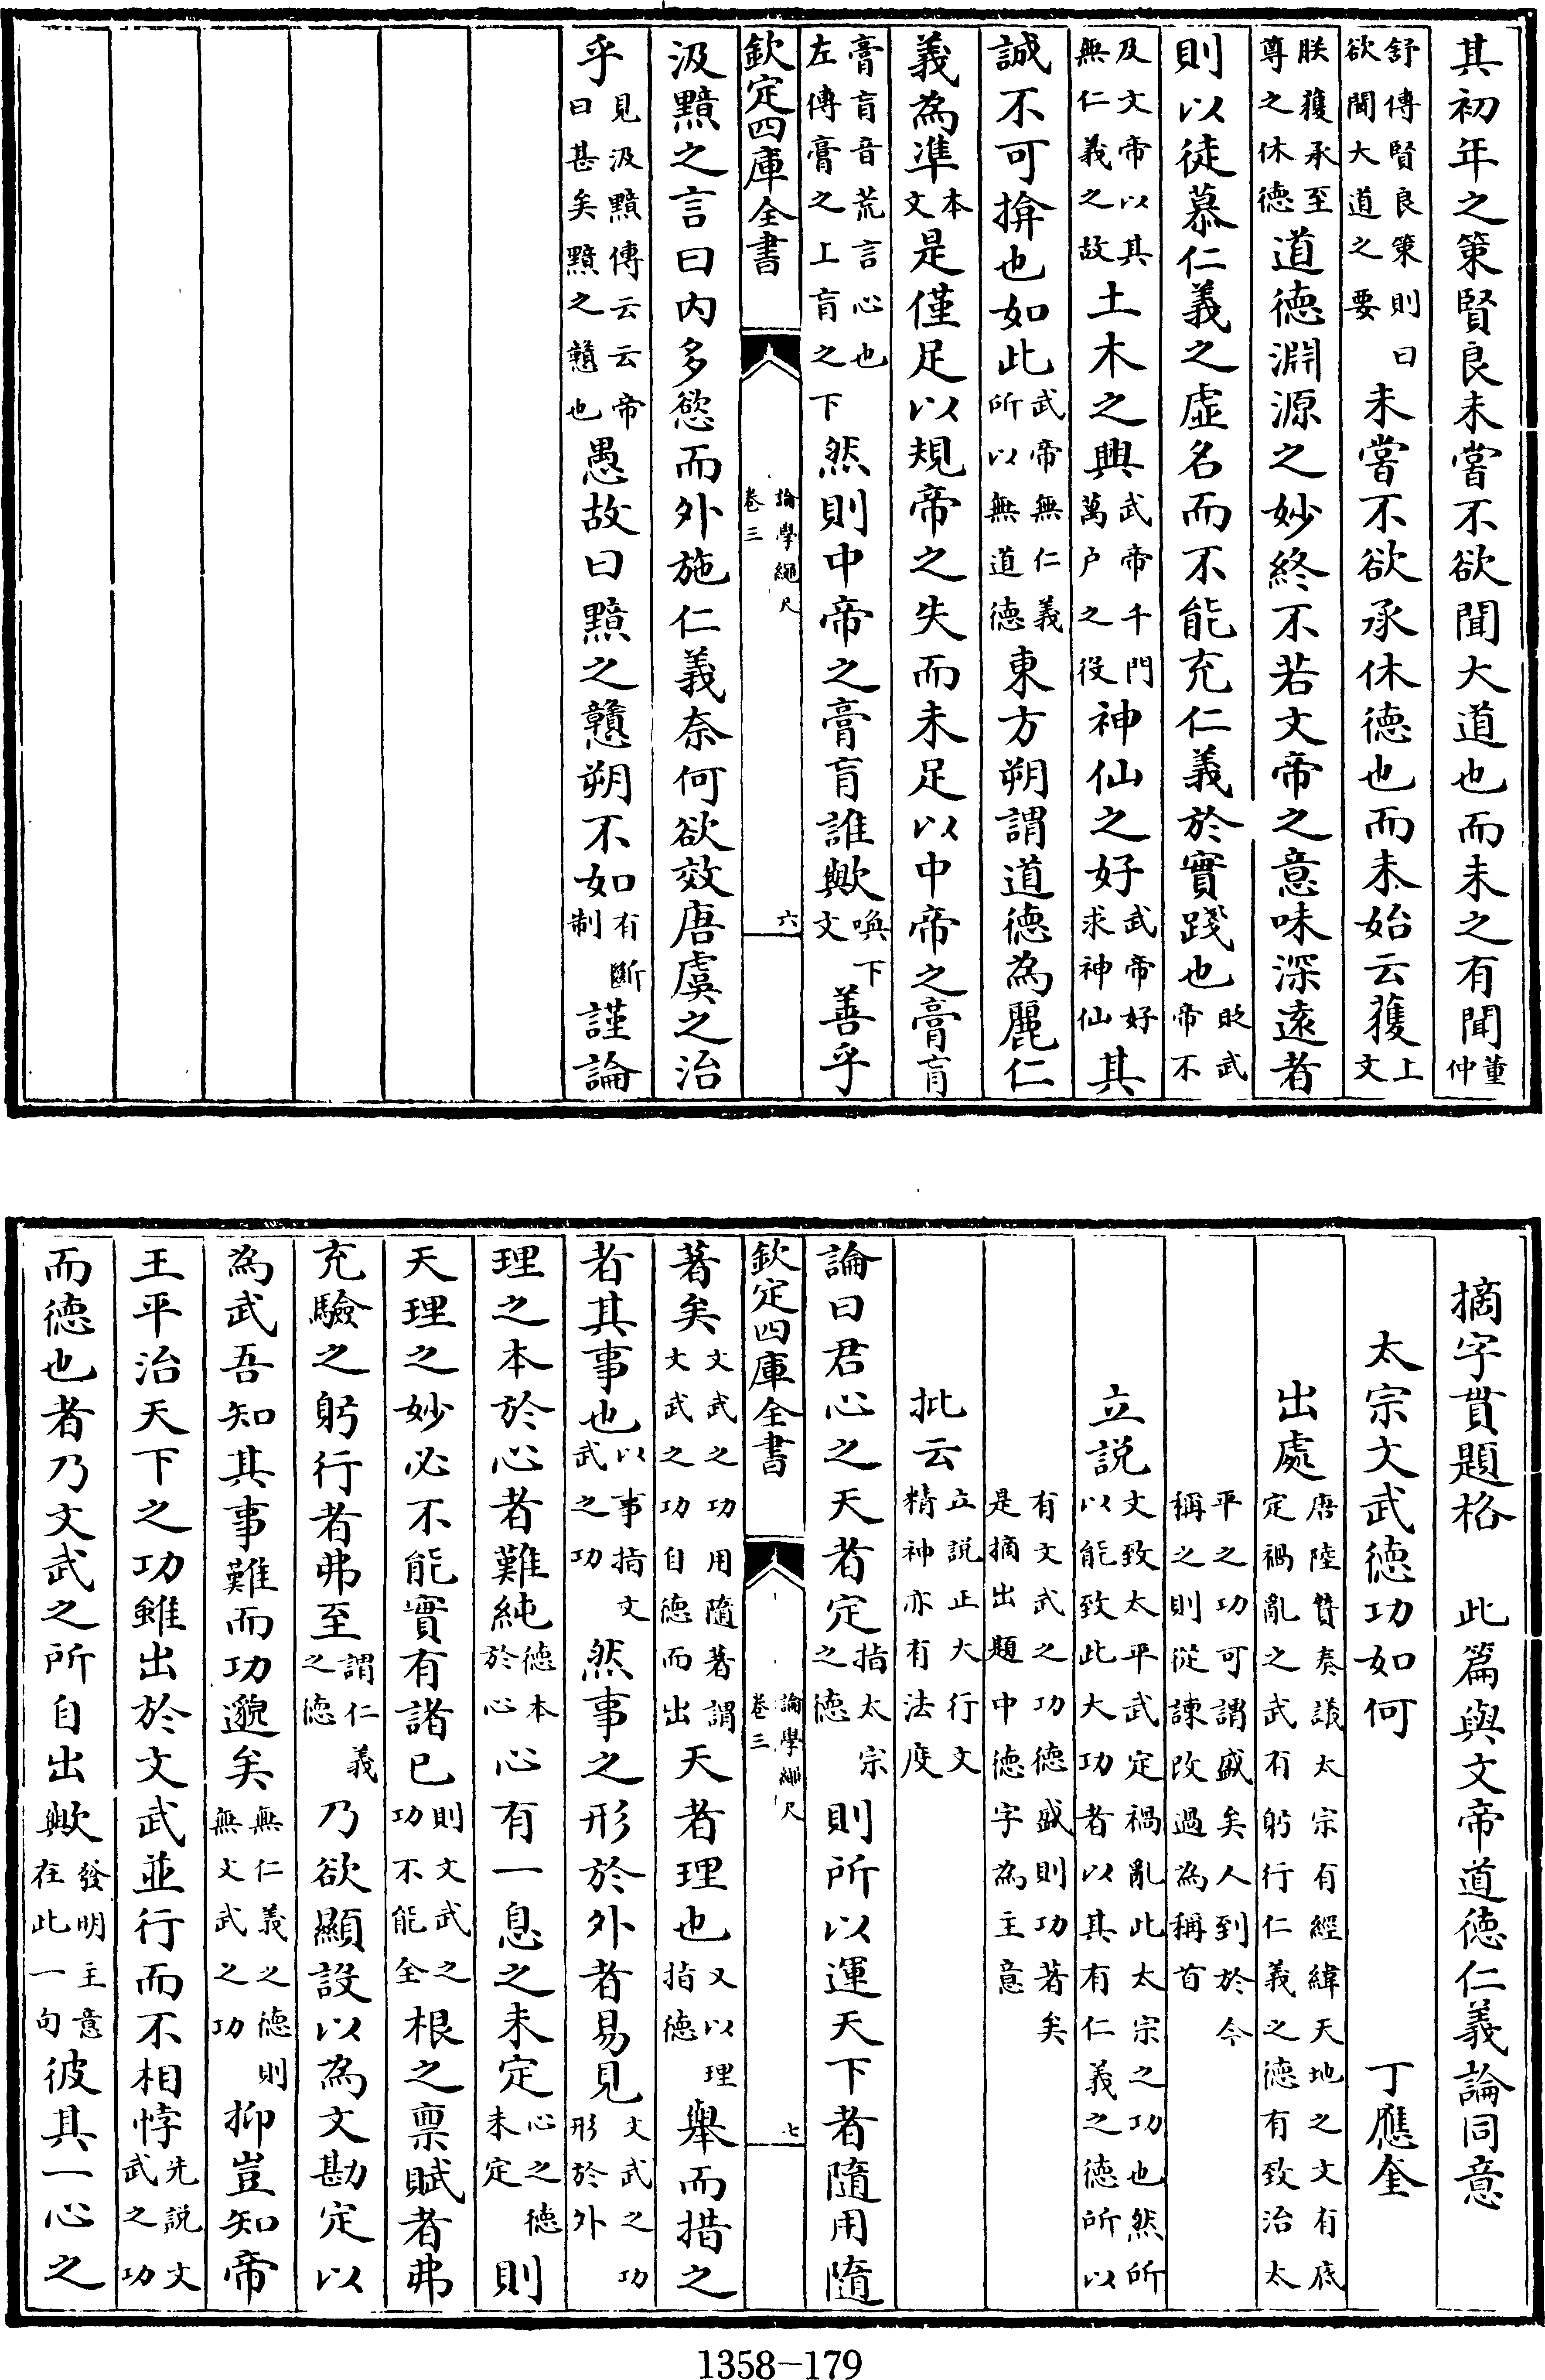 其初年之策賢良未嘗不欲聞大道也而未之有聞董仲
舒傳賢良策則曰欲聞大道之要未嘗不欲承休德也而未始云獲上文
朕獲承至尊之休德道德淵源之妙終不若文帝之意味深遠者
則以徒慕仁義之虛名而不能充仁義於實踐也貶武帝不
及文帝以其無仁義之故土木之興武帝千門萬户之役神仙之好武帝好求神仙其
誠不可揜也如此武帝無仁義所以無道德東方朔謂道德為麗仁
義為凖本文是僅足以規帝之失而未足以中帝之膏肓
膏肓音荒言心也左傳膏之上肓之下然則中帝之膏肓誰歟喚下文善乎
欽定四庫全書
論學繩尺
卷三
六
汲黯之言曰内多慾而外施仁義奈何欲效唐虞之治
乎見汲黯傳云云帝曰甚矣黯之戇也愚故曰黯之戇朔不如有斷制謹論
摘字貫題格　此篇與文帝道德仁義論同意
太宗文武德功如何　丁應奎
出處唐陸贄奏議太宗有經緯天地之文有底定禍亂之武有躬行仁義之德有致治太
平之功可謂盛矣人到於今稱之則從諫改過為稱首
立説文致太平武定禍亂此太宗之功也然所以能致此大功者以其有仁義之德所以
有文武之功德盛則功著矣是摘出題中德字為主意
批云立説正大行文精神亦有法度
論曰君心之天者定指太宗之德則所以運天下者隨用隨
欽定四庫全書
論學繩尺
卷三
七
著矣文武之功用隨著謂文武之功自德而出天者理也又以理指德舉而措之
者其事也以事指文武之功然事之形於外者易見文武之功形於外
理之本於心者難純德本於心心有一息之未定心之德未定則
天理之妙必不能實有諸已則文武之功不能全根之禀賦者弗
充驗之躬行者弗至謂仁義之德乃欲顯設以為文勘定以
為武吾知其事難而功邈矣無仁義之德則無文武之功抑豈知帝
王平治天下之功雖出於文武並行而不相悖先説文武之功
而德也者乃文武之所自出歟發明主意在此一句彼其一心之
1358-179